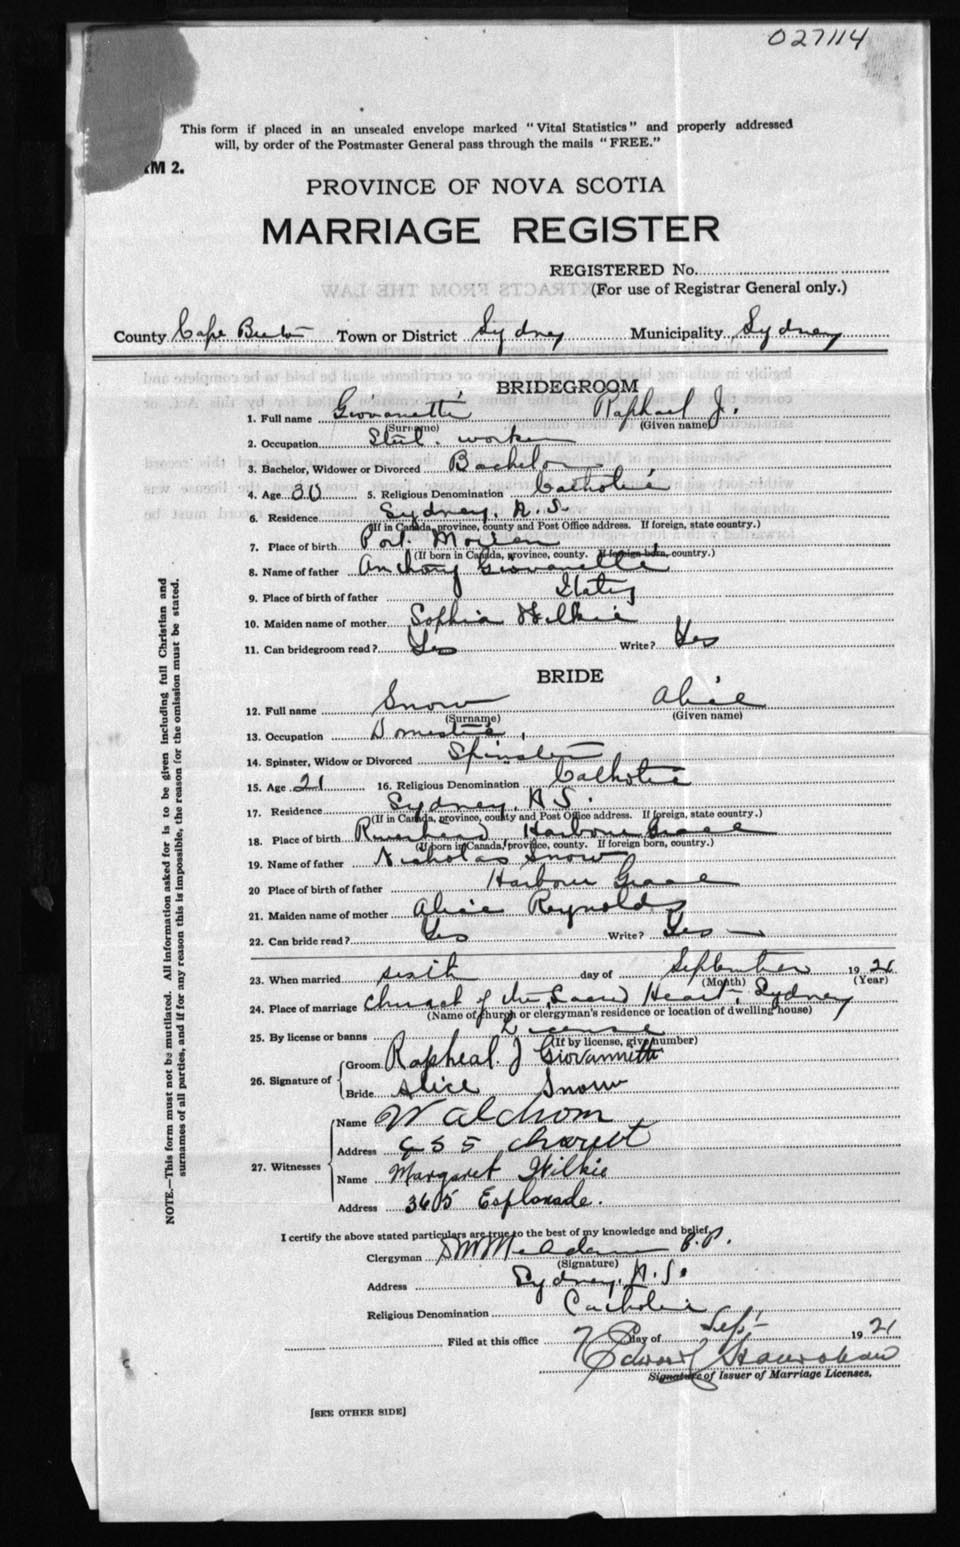 027114
This form if placed in an unsealed envelope marked "Vital Statistics" and properly addressed
will, by order of the Postmaster General pass through the mails "FREE."
RM 2.
PROVINCE OF NOVA SCOTIA
MARRIAGE REGISTER
REGISTERED No.
(For use of Registrar General only.)
County Cape Breton Town or District Sydney Municipality Sydney
BRIDEGROOM
1. Full name Giovanetti Raphael J.
(Surname) (Given name)
2. Occupation Steel worker
3. Bachelor, Widower or Divorced Bachelor
4. Age 30 5. Religious Denomination Catholic
6. Residence Sydney, N.S.
(If in Canada, province, county and Post Office address. If foreign, state country.)
7. Place of birth Port Morien
(If born in Canada, province, county. If foreign born, country.)
8. Name of father Anthony Giovanetti
9. Place of birth of father Italy
10. Maiden name of mother Sophia Wilkie
11. Can bridegroom read? Yes Write? Yes
BRIDE
12. Full name Snow Alice
(Surname) (Given name)
13. Occupation Domestic
14. Spinster, Widow or Divorced Spinster
15. Age 21 16. Religious Denomination Catholic
17. Residence Sydney, N.S.
(If in Canada, province, county and Post Office address. If foreign, state country.)
18. Place of birth Riverhead Harbour Grace
(If born in Canada, province, county. If foreign born, country.)
19. Name of father Nicholas Snow
20 Place of birth of father Harbour Grace
21. Maiden name of mother Alice Reynolds
22. Can bride read? Yes Write? Yes
23. When married sixth day of September 1921
(Month) (Year)
24. Place of marriage Church of the Sacred Heart, Sydney
(Name of church or clergyman's residence or location of dwelling house)
25. By license or banns License
(If by license, give number)
26. Signature of Groom Rapheal J Giovannetti
Bride Alice Snow
27. Witnesses Name W
Address
Name Margaret Wilkie
Address 365 Esplanade.
I certify the above stated particulars are true to the best of my knowledge and belief,
Clergyman P.P.
(Signature)
Address Sydney, N.S.
Religious Denomination Catholic
Filed at this office 7 day of Sept 1921
Edward
Signature of Issuer of Marriage Licenses.
[SEE OTHER SIDE]
NOTE.—This form must not be mutilated. All information asked for is to be given including full Christian and
surnames of all parties, and if for any reason this is impossible, the reason for the omission must be stated.